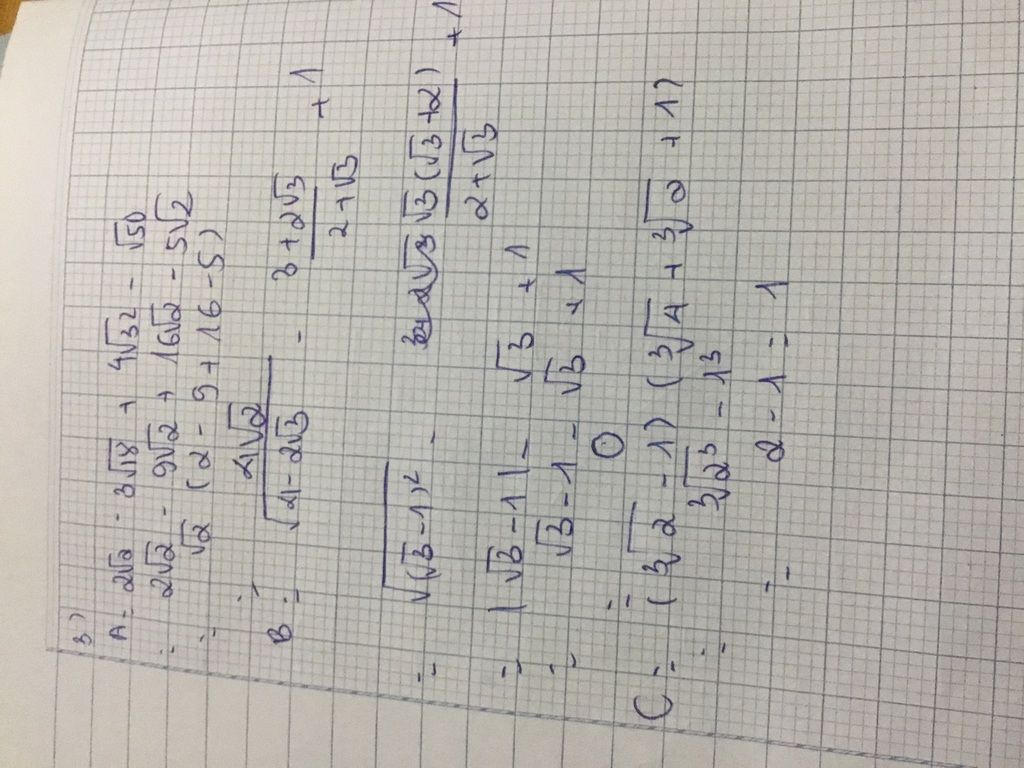 3)
A = 2√2 - 3√18 + 4√32 - √50
= 2√2 - 9√2 + 16√2 - 5√2
= √2 (2 - 9 + 16 - 5)
= 4√2
B = √(4 - 2√3) - (3 + 2√3)/(2 + √3) + 1
= √((√3 - 1)²) - √3(√3 + 2)/(2 + √3) + 1
= |√3 - 1| - √3 + 1
= √3 - 1 - √3 + 1
= 0
C = (∛2 - 1) (∛4 + ∛2 + 1)
= ∛2³ - 1³
= 2 - 1 = 1